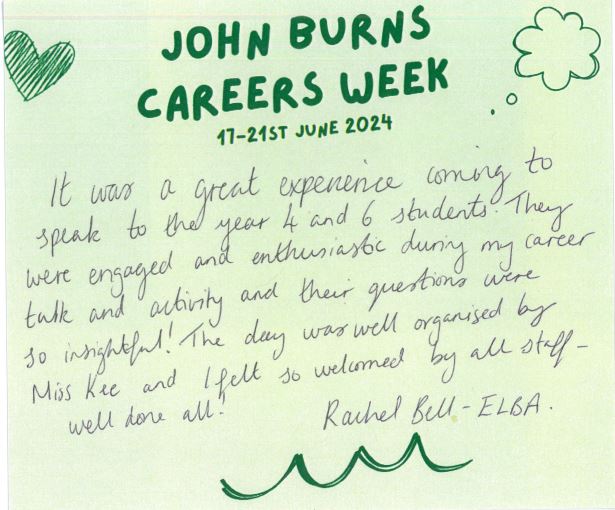 JOHN BURNS
CAREERS WEEK
17-21ST JUNE 2024
It was a great experience coming to
speak to the year 4 and 6 students. They
were engaged and enthusiastic during my career
talk and activity and their questions were
so insightful! The day was well organised by
Miss Kee and I felt so welcomed by all staff -
well done all!
Rachel Bell - ELBA.